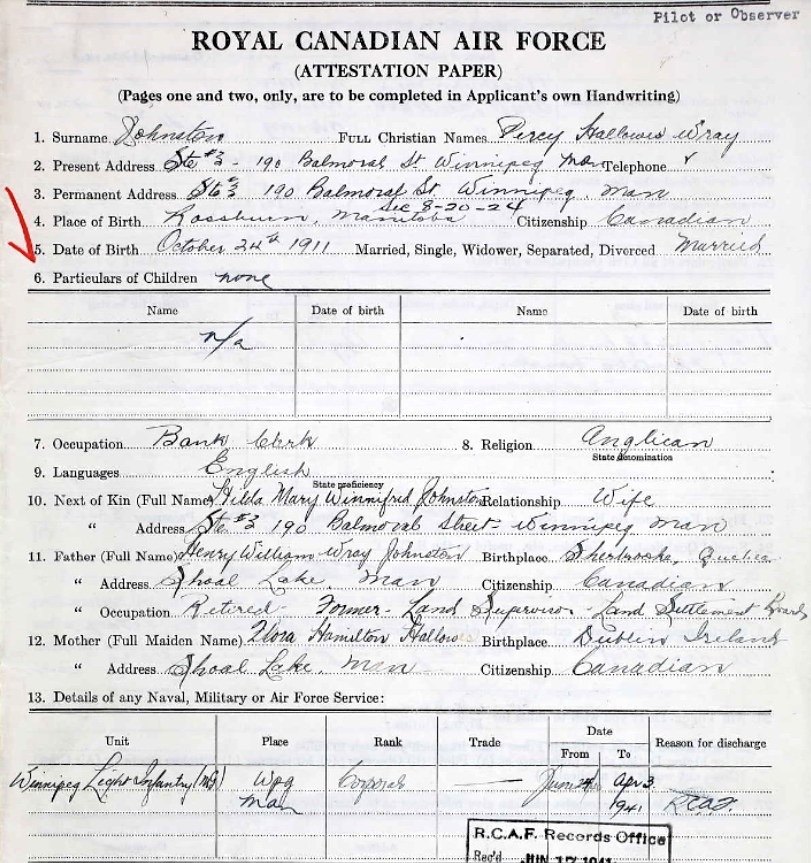 Pilot or Observer
ROYAL CANADIAN AIR FORCE
(ATTESTATION PAPER)
(Pages one and two, only, are to be completed in Applicant's own Handwriting)
1. Surname Johnston FULL Christian Names Percy Hallowes Wray
2. Present Address Ste #3 - 190 Balmoral St Winnipeg Man Telephone
3. Permanent Address Ste #3 190 Balmoral St. Winnipeg, Man
Sec 8-20-24
4. Place of Birth Rossburn, Manitoba Citizenship Canadian
5. Date of Birth October 24th 1911 Married, Single, Widower, Separated, Divorced Married
6. Particulars of Children none
Name Date of birth Name Date of birth
n/a
7. Occupation Bank Clerk 8. Religion Anglican
State denomination
9. Languages English
State proficiency
10. Next of Kin (Full Name) Hilda Mary Winnifred Johnston Relationship Wife
" Address Ste #3 190 Balmoral Street - Winnipeg Man
11. Father (Full Name) Henry William Wray Johnston Birthplace Sherbrooke, Quebec
" Address Shoal Lake, Man Citizenship Canadian
" Occupation Retired - Former - Land Supervisor - Land Settlement Board
12. Mother (Full Maiden Name) Flora Hamilton Hallowes Birthplace Dublin Ireland
" Address Shoal Lake, Man Citizenship Canadian
13. Details of any Naval, Military or Air Force Service:
Unit Place Rank Trade Date Reason for discharge
From To
Winnipeg Light Infantry (MG) Wpg Corporal — June Apr 3
Man 1941 R.C.A.F.
R.C.A.F. Records Office
Rec'd JUN 17 1941